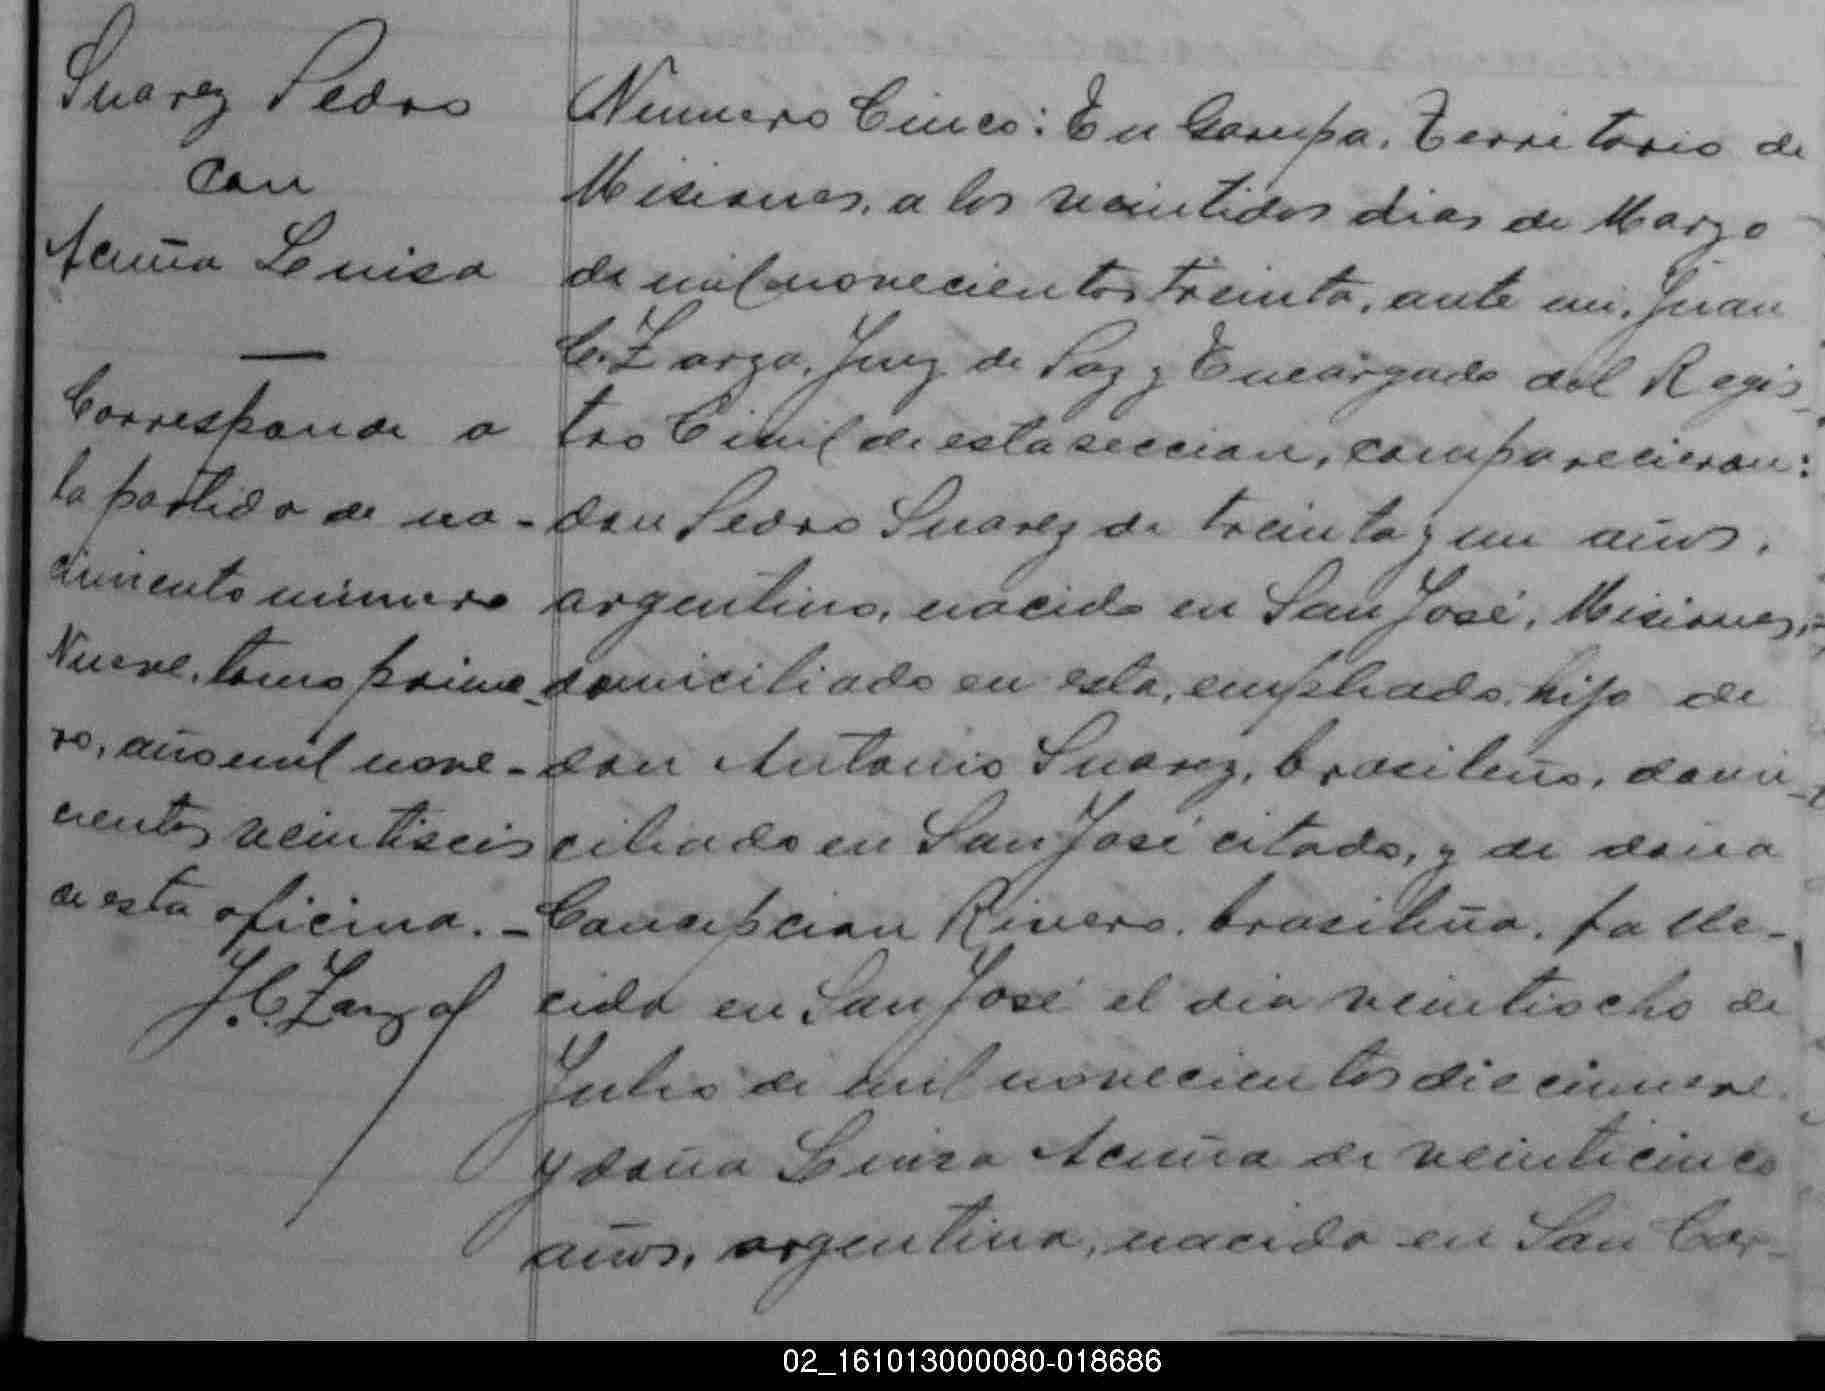 Suarez Pedro
con
Acuña Luisa
—
Corresponde a
la partida de na-
cimiento número
Nueve, tomo prime-
ro, año mil nove-
cientos veintiseis
de esta oficina.-
J. C. Zarza
Número Cinco: En Garupa, Territorio de
Misiones, a los veintidos dias de Marzo
de mil novecientos treinta, ante mi, Juan
C. Zarza, Juez de Paz y Encargado del Regis-
tro Civil de esta seccion, comparecieron:
don Pedro Suarez de treinta y un años,
argentino, nacido en San José, Misiones,
domiciliado en esta, empleado, hijo de
don Antonio Suarez, brasileño, domi-
ciliado en San José citado, y de doña
Concepcion Rivero, brasileña, falle-
cida en San José el dia veintiocho de
Julio de mil novecientos diecinueve
y doña Luisa Acuña de veinticinco
años, argentina, nacida en San Car-
02_161013000080-018686